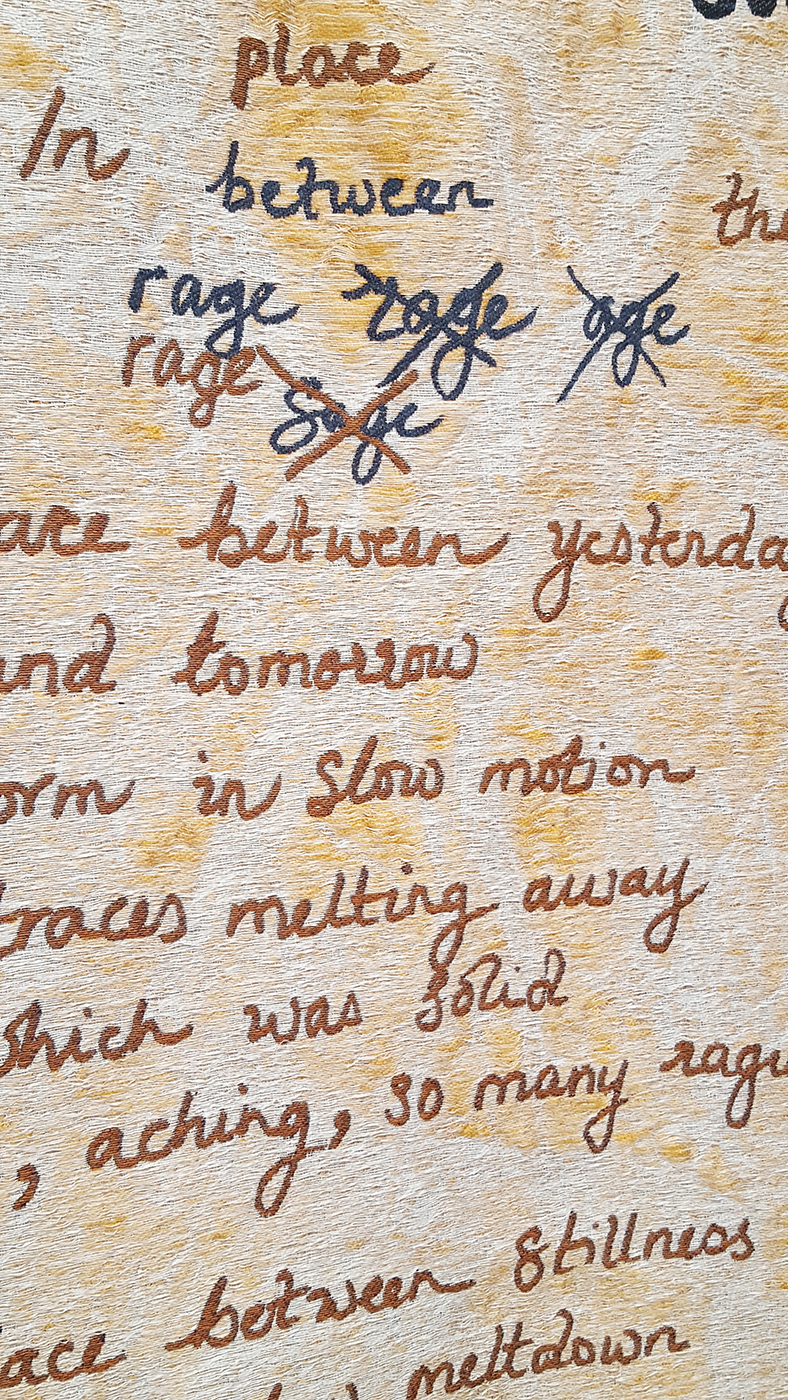 place
In
between
the
rage rage age
rage sage
ace between yesterday
and tomorrow
orm in slow motion
traces melting away
which was solid
, aching, so many ragu
ace between stillness
meltdown